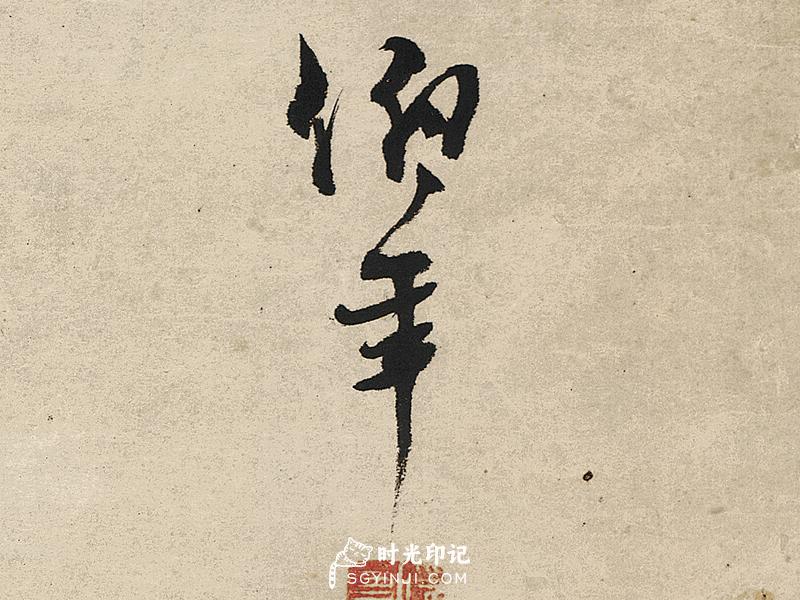 伯年
时光印记
SGYINJI.COM